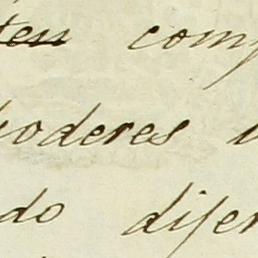 ten comp
poderes
do difer